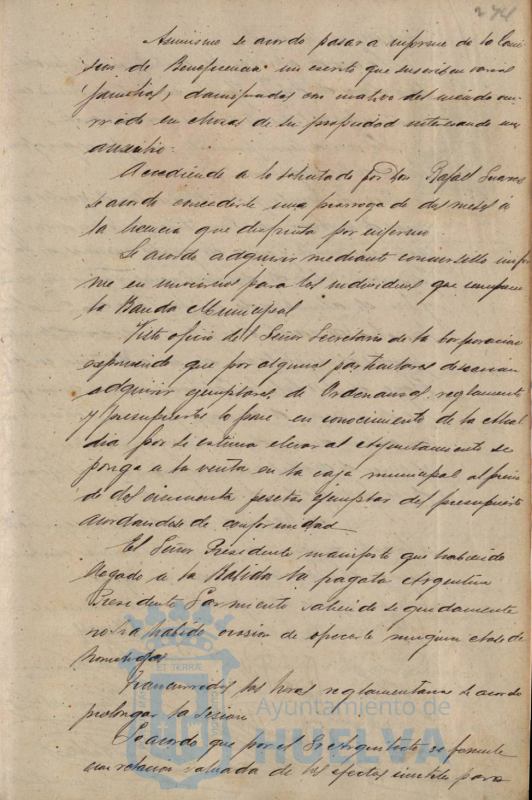 274
Asimismo se acordo pasar a informe de la Comi
sion de Beneficencia un escrito que suscriben varias
familias, damnificadas con motivo del incendio ocu
rrido en chozas de su propiedad interesando un
auxilio.
Accediendo a lo solicitado por Don Rafael Suarez
se acordo concederle una prorroga de dos meses a
la licencia que disfruta por enfermo
Se acordo adquirir mediante concursillo unifor
mes para los individuos que componen
la Banda Municipal
Visto oficio del Señor Secretario de la Corporacion
expresando que por algunos particulares desean
adquirir ejemplares de Ordenanzas, reglamentos
y presupuestos lo pone en conocimiento de la Alcal
dia por si estima elevar al Ayuntamiento se
ponga a la venta en la caja municipal al precio
de dos cincuenta pesetas ejemplar del presupuesto
acordandose de conformidad
El Señor Presidente manifesto que habiendo
llegado a la Rabida la fragata Argentina
Presidente Sarmiento saliendo seguidamente
no ha habido ocasion de ofrecerle ninguna clase de
homenajes
Transcurridas las horas reglamentarias se acordo
prolongar la sesion
Se acordo que por el Sr Arquitecto se formule
una relacion valorada de los efectos inutiles para
ET TERRÆ
Ayuntamiento de
HUELVA